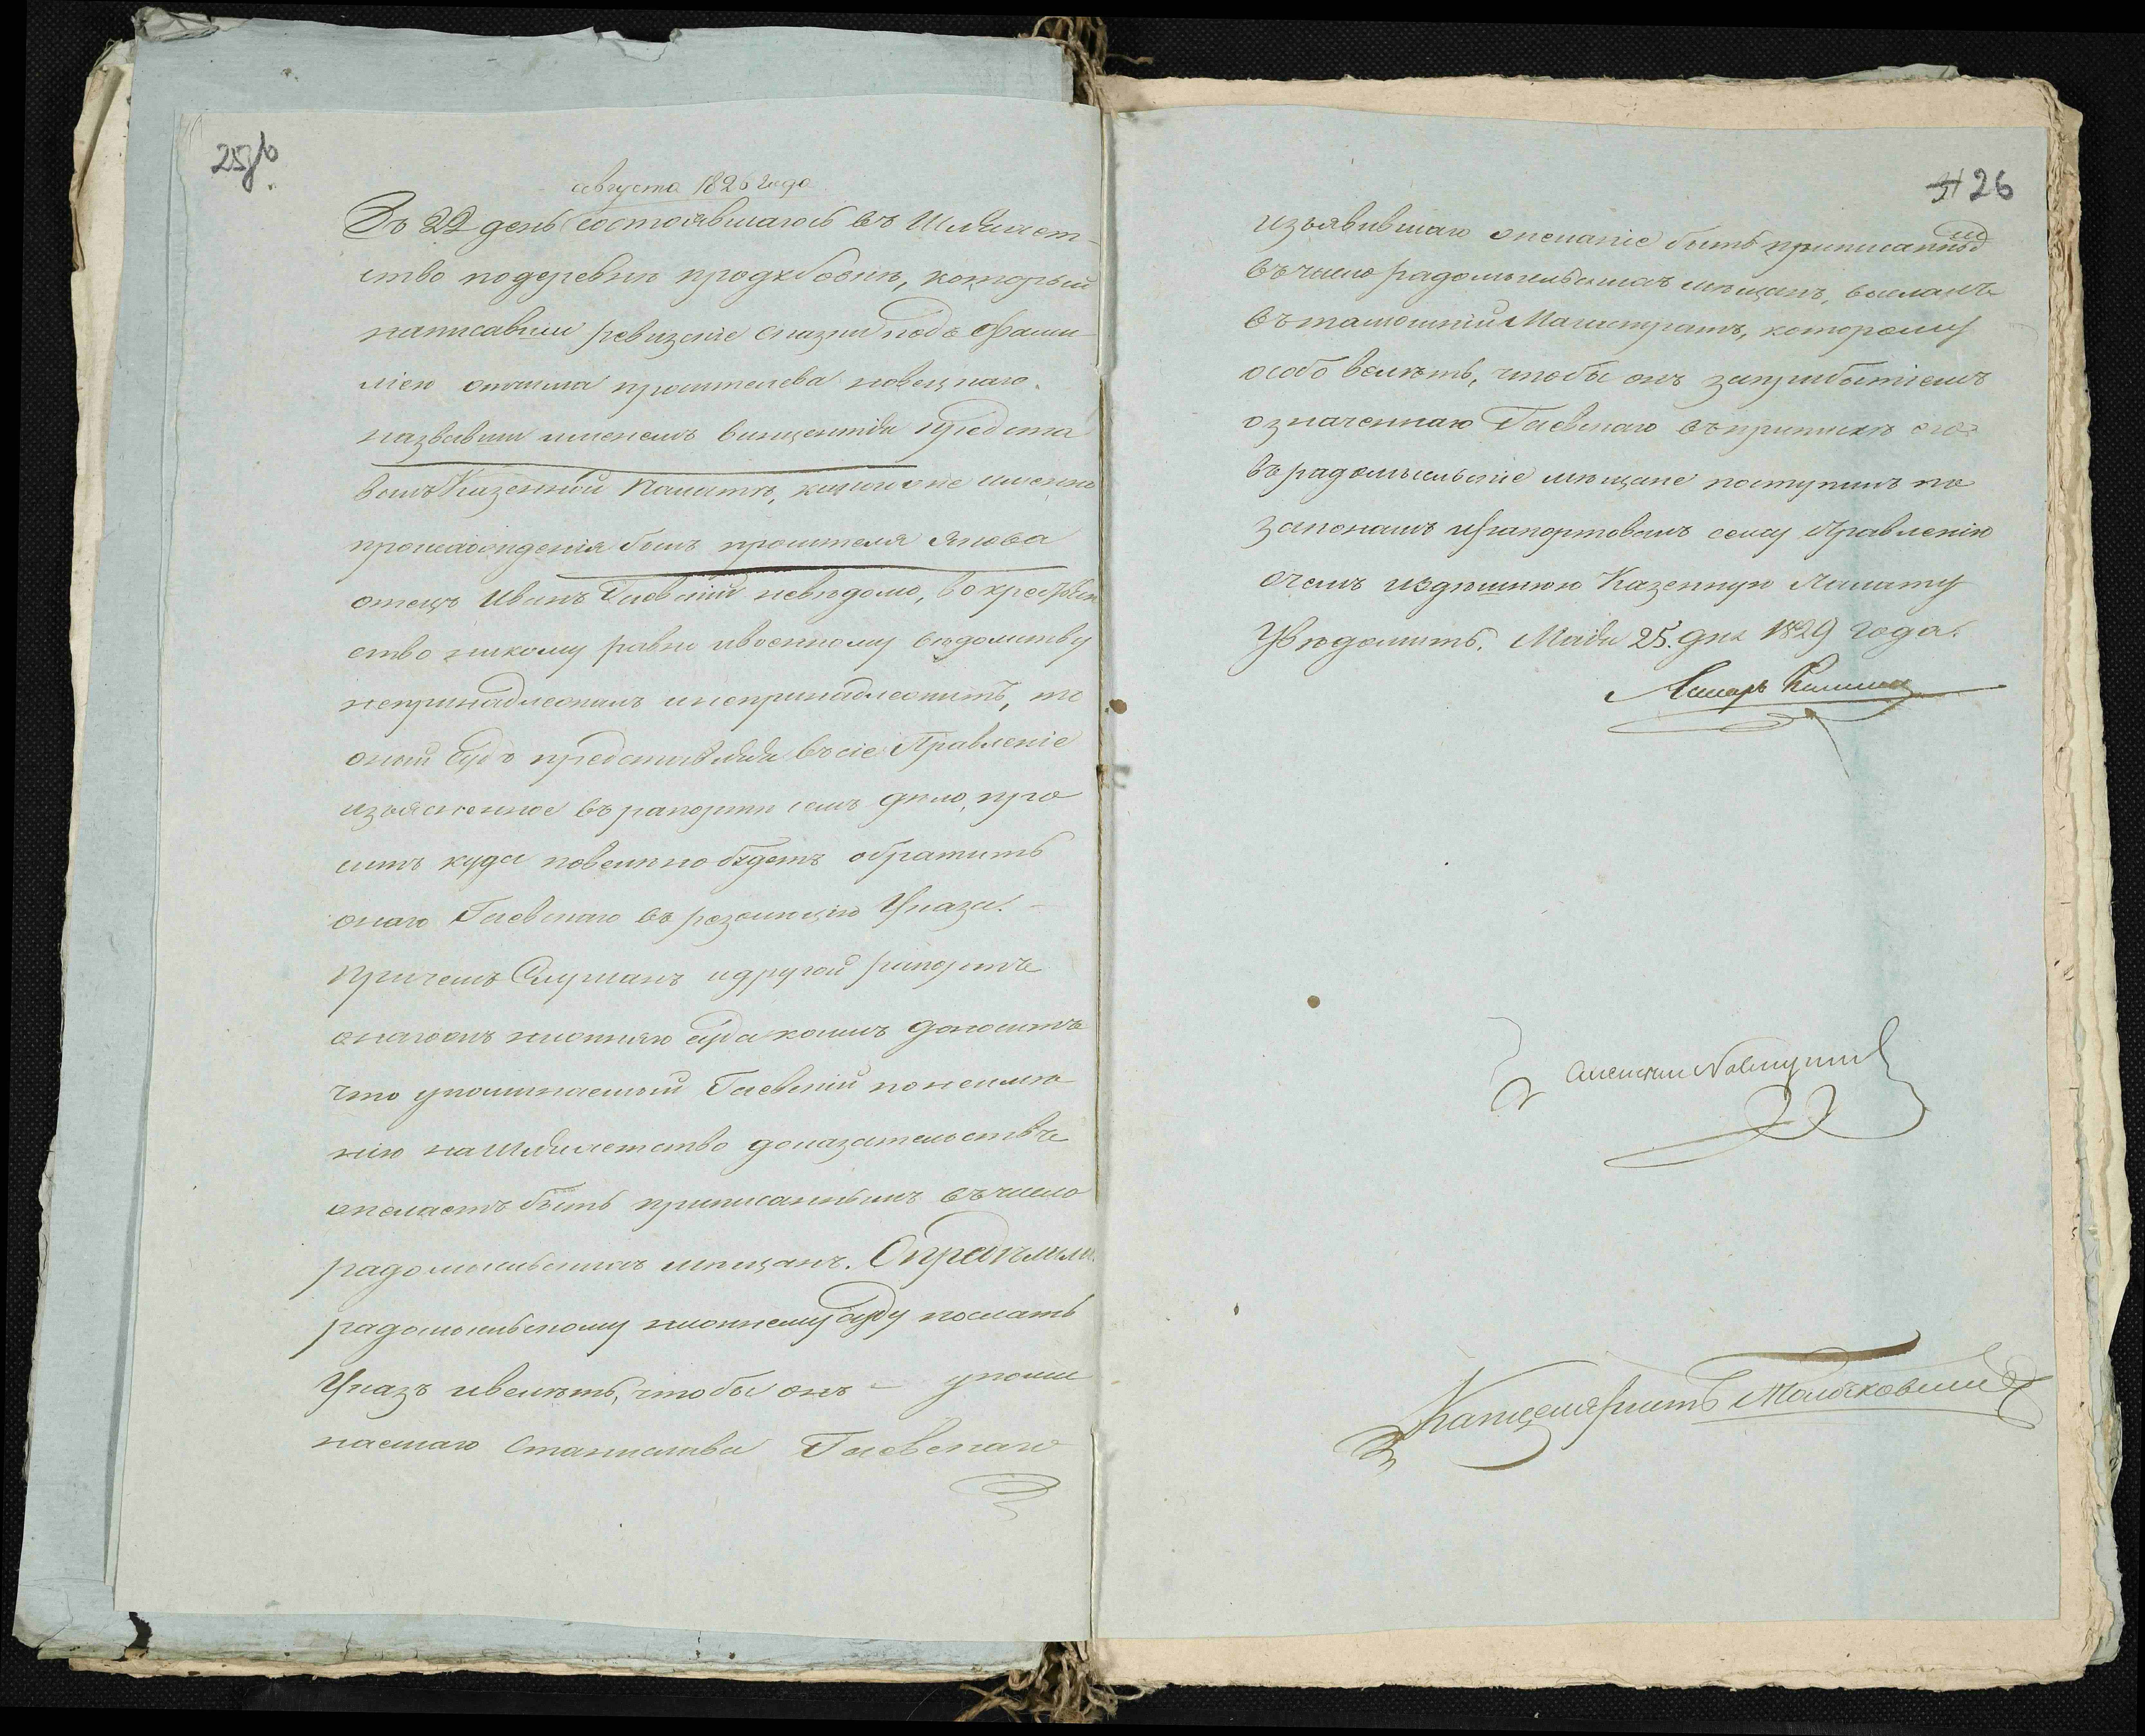 25об
августа 1826 года
въ 22 день состоявшагось въ Шляхет-
ство подеревне который
написавши ревизскіе сказки подъ фами
ліею отчима просителева
назвавши именемъ Викентія предста
вилъ Казенной Палатѣ, какого же именно
происхожденія былъ проситель якова
отецъ Иванъ Гаевскій неведомо, вокрестьян
ство никому равно ивоенному ведомству
непринадлежалъ инепринадлежитъ, то
оный Судъ представляя всіе Правленіе
изъясненное въ рапорти семъ дѣло, про
ситъ куда повелено будетъ обратить
онаго Гаевскаго въ резолюцію Указа.
Причемъ Слушанъ идругой рапортъ
онагожъ нижняго суда коимъ доноситъ
что упоминаемый Гаевскій понеимѣ
нію на Шляхетство доказательствъ
желаетъ быть приписаннымъ въчисло
радомысльскихъ мещанъ. Определили:
радомысльскому нижнему суду послать
Указъ ивелеть, чтобы онъ упоми
наемаго Станислава Гаевскаго
26
изъявившаго желаніе быть приписаннымъ
въчисло радомысльскихъ мещанъ, выслалъ
въ тамошній Магистратъ, которому
особо велѣть, чтобы онъ заприбытіемъ
означеннаго Гаевскаго въприписке его
въ радомысльскіе мещане поступилъ по
законамъ ирапортовалъ сему Правленію
очемъ издешнюю Казенную Палату
Уведомить. Маія 25. дня 1829 года.
Канцеляристъ